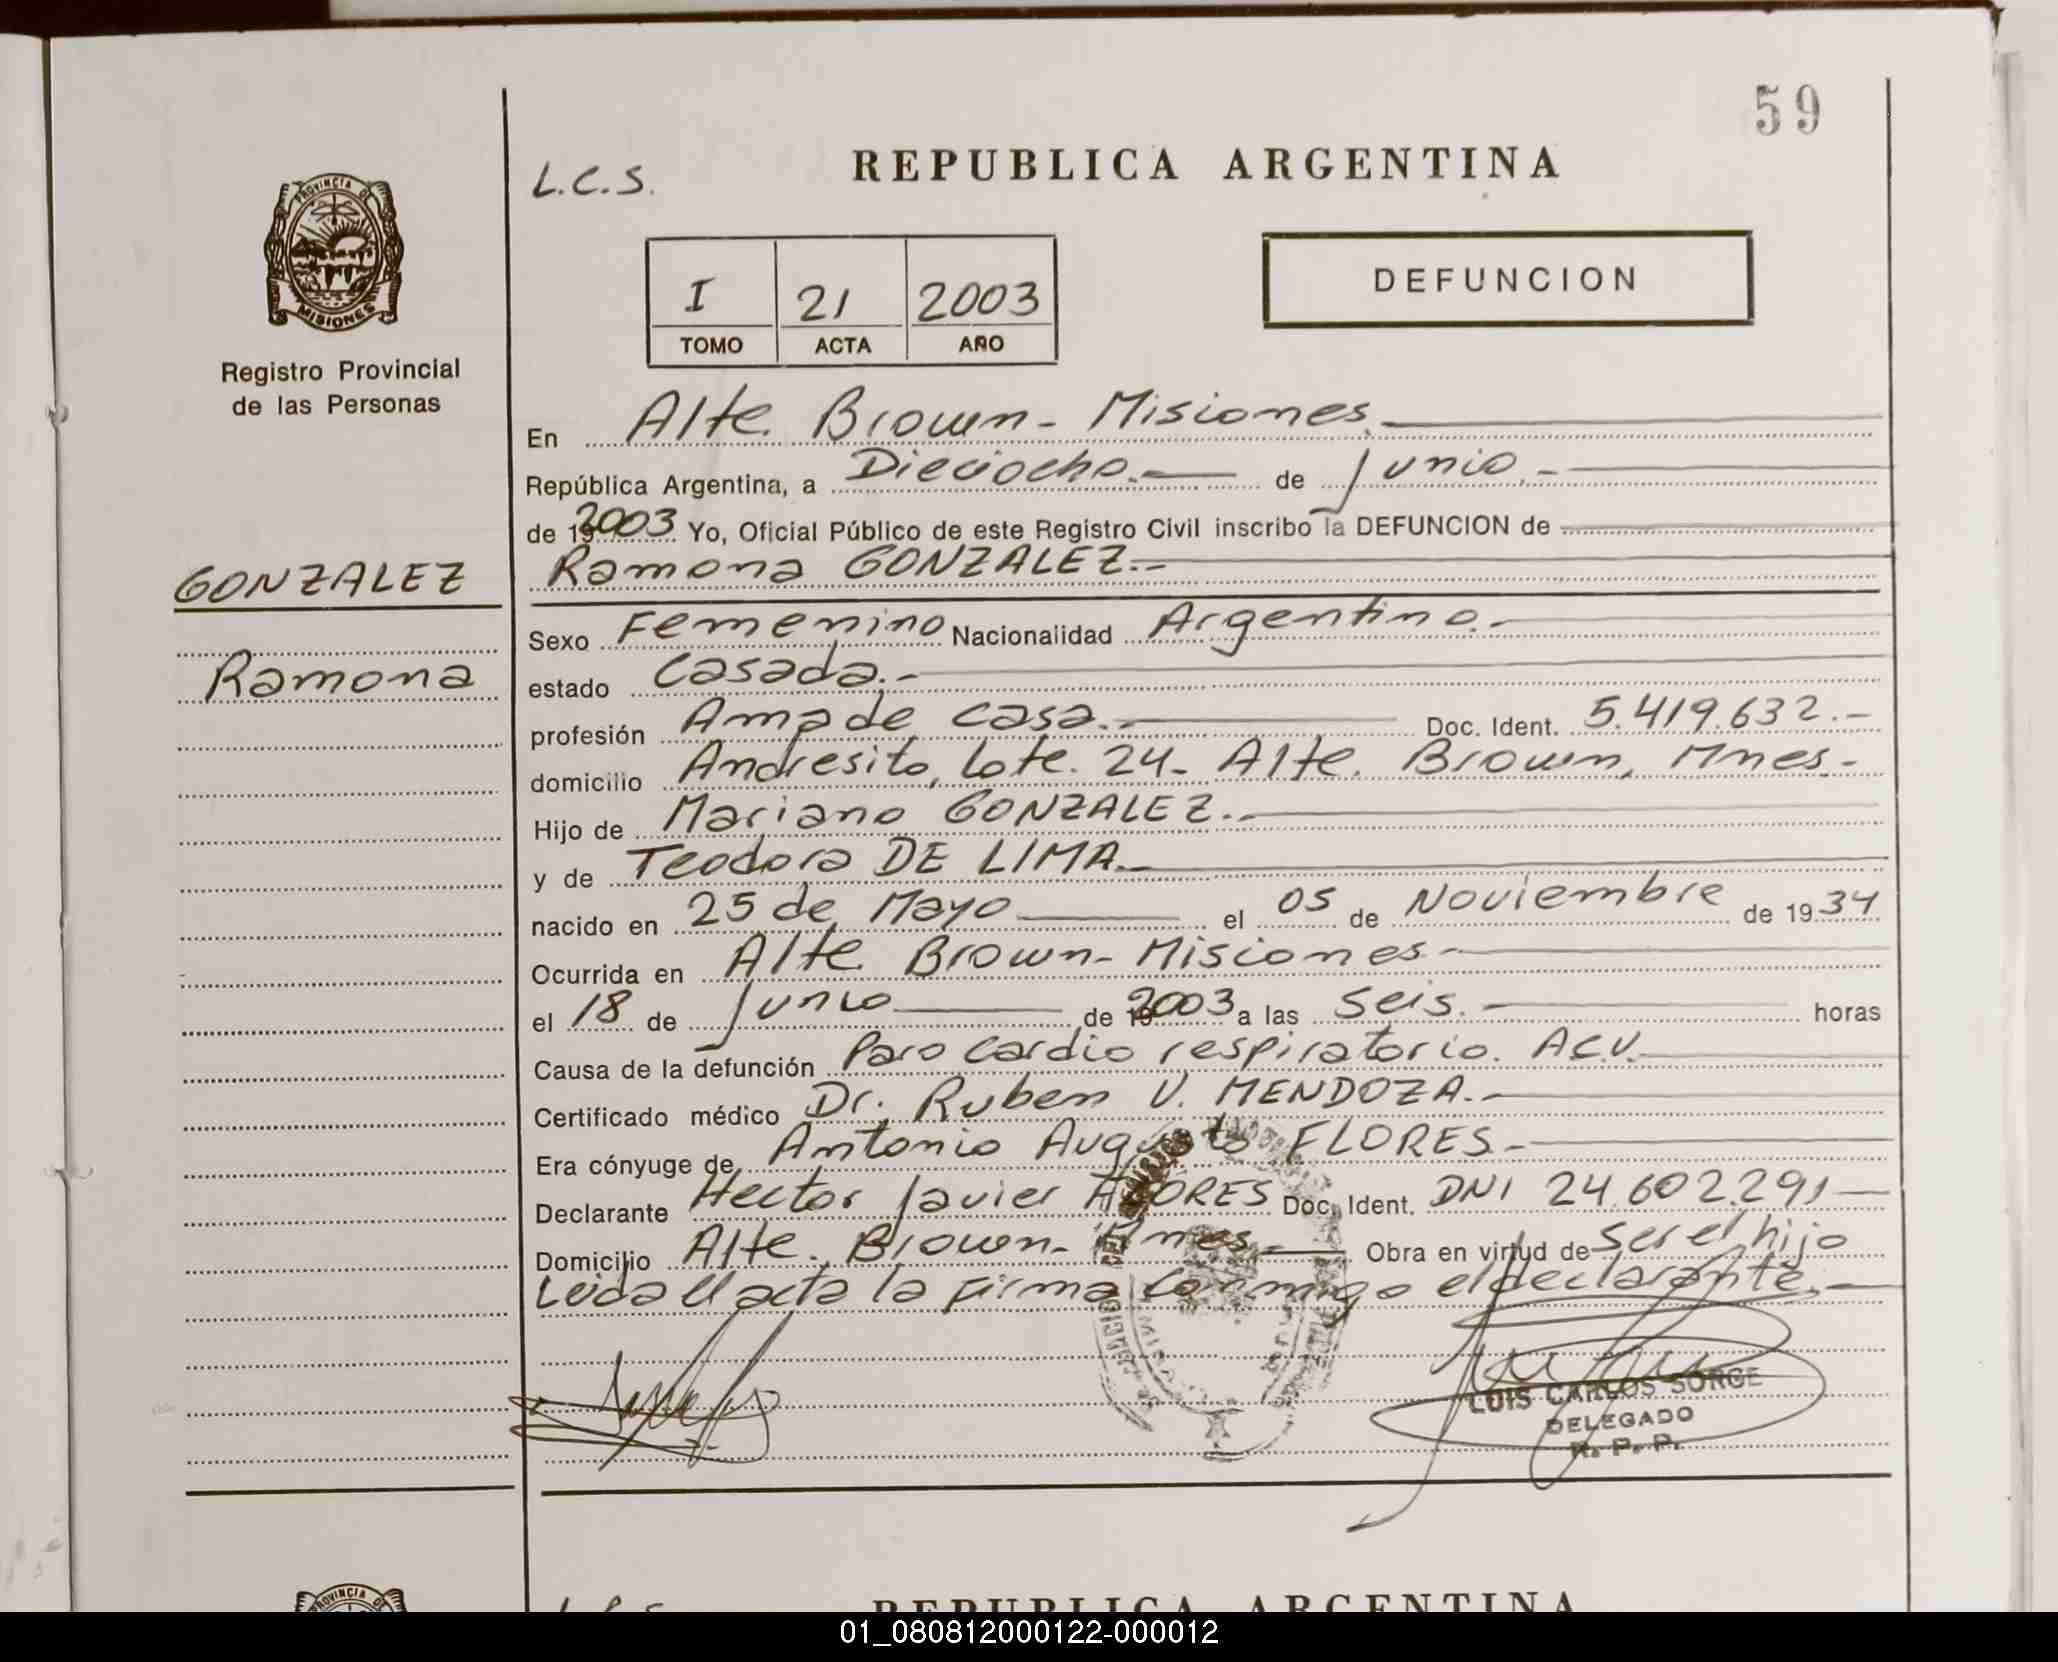 59
PROVINCIA DE
MISIONES
Registro Provincial
de las Personas
L.C.S.
REPUBLICA ARGENTINA
I 21 2003
TOMO ACTA AÑO
DEFUNCION
En Alte. Brown - Misiones.
República Argentina, a Dieciocho.- de Junio.-
de 192003 Yo, Oficial Público de este Registro Civil inscribo la DEFUNCION de
GONZALEZ
Ramona GONZALEZ.-
Sexo Femenino Nacionalidad Argentina.-
Ramona
estado Casada.-
profesión Ama de casa.- Doc. Ident. 5.419.632.-
domicilio Andresito, Lote. 24- Alte. Brown, Mnes-
Hijo de Mariano GONZALEZ.-
y de Teodora DE LIMA.
nacido en 25 de Mayo el 05 de Noviembre de 1934
Ocurrida en Alte. Brown - Misiones-
el 18 de Junio de 192003 a las Seis.- horas
Causa de la defunción Paro Cardio respiratorio. A.C.V.
Certificado médico Dr. Ruben V. MENDOZA.-
Era cónyuge de Antonio Augusto FLORES.-
Declarante Hector Javier FLORES Doc. Ident. DNI 24.602.291
Domicilio Alte. Brown - Mnes.- Obra en virtud de Ser el hijo
Leida el acta la firma Conmigo el declarante.-
LUIS CARLOS SORGE
DELEGADO
R. P. P.
PROVINCIA DE
REPUBLICA ARGENTINA
01_080812000122-000012